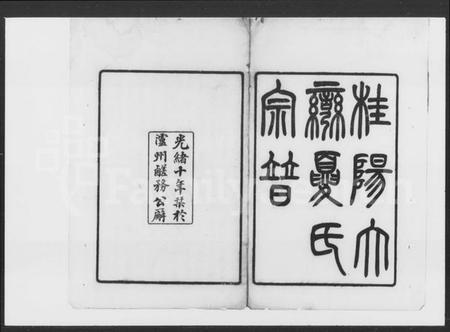 桂陽大
灣夏氏
宗譜
光緒十年栞於
瀘州鹺務公廨
FamilySearch